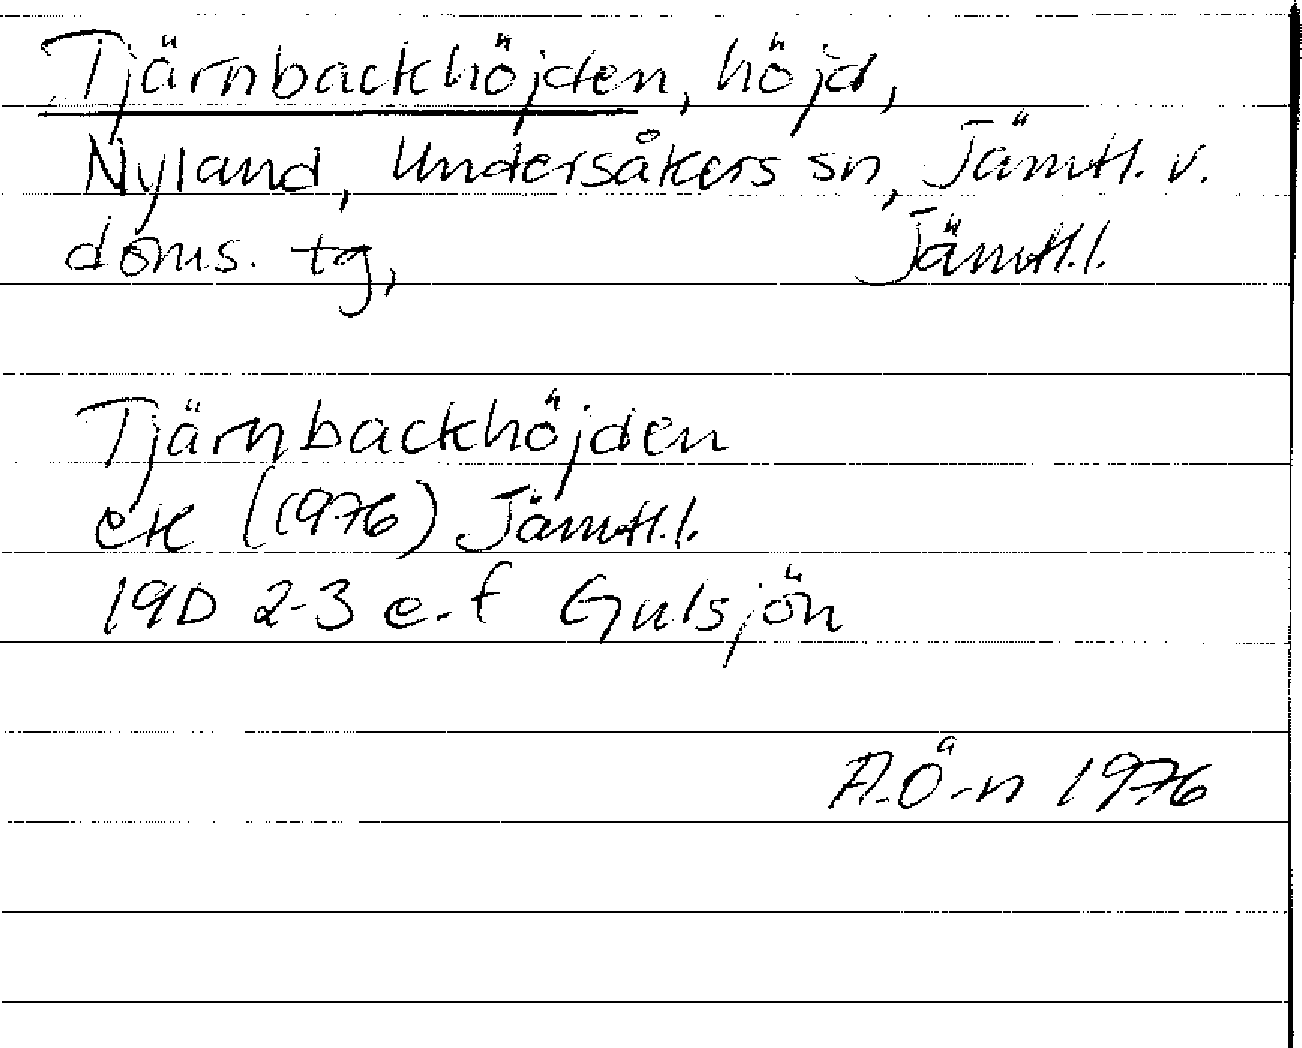 Tjärnbackhöjden, höjd,
Nyland, Undersåkers sn, Jämtl. v.
doms. tg, Jämtl.l.
Tjärnbackhöjden
ek (1976) Jämtl.l.
19D 2-3 e-f Gulsjön
A.Ö-n 1976